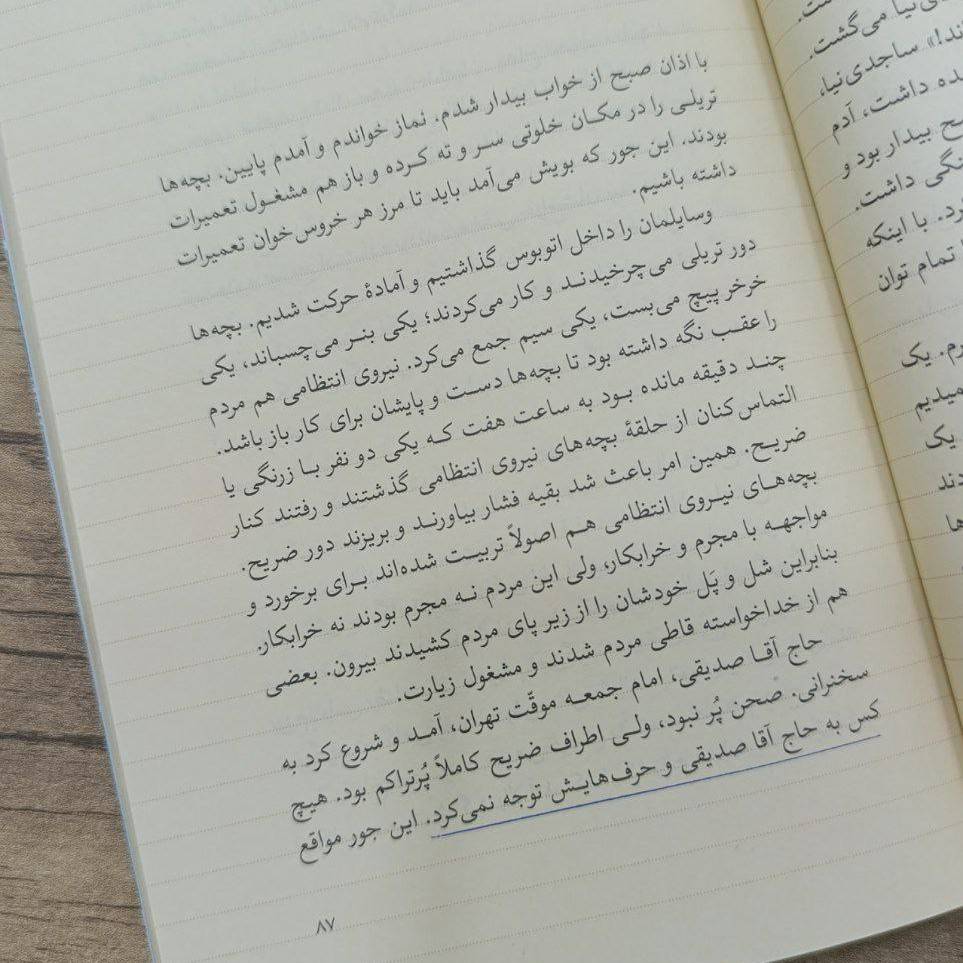 با اذان صبح از خواب بیدار شدم. نماز خواندم و آمدم پایین. بچه‌ها
تریلی را در مکان خلوتی سر و ته کرده و باز هم مشغول تعمیرات
بودند. این جور که بویش می‌آمد باید تا مرز هر خروس‌خوان تعمیرات
داشته باشیم.
وسایلمان را داخل اتوبوس گذاشتیم و آمادهٔ حرکت شدیم. بچه‌ها
دور تریلی می‌چرخیدند و کار می‌کردند؛ یکی بنر می‌چسباند، یکی
خرخر پیچ می‌بست، یکی سیم جمع می‌کرد. نیروی انتظامی هم مردم
را عقب نگه داشته بود تا بچه‌ها دست و پایشان برای کار باز باشد.
چند دقیقه مانده بود به ساعت هفت که یکی دو نفر با زرنگی یا
التماس‌کنان از حلقهٔ بچه‌های نیروی انتظامی گذشتند و رفتند کنار
ضریح. همین امر باعث شد بقیه فشار بیاورند و بریزند دور ضریح.
بچه‌های نیروی انتظامی هم اصولاً تربیت شده‌اند برای برخورد و
مواجهه با مجرم و خرابکار، ولی این مردم نه مجرم بودند نه خرابکار.
بنابراین شل و پَل خودشان را از زیر پای مردم کشیدند بیرون. بعضی
هم از خداخواسته قاطی مردم شدند و مشغول زیارت.
حاج آقا صدیقی، امام جمعه موقّت تهران، آمد و شروع کرد به
سخنرانی. صحن پُر نبود، ولی اطراف ضریح کاملاً پُرتراکم بود. هیچ
کس به حاج آقا صدیقی و حرف‌هایش توجه نمی‌کرد. این جور مواقع
۸۷
نیا می‌گشت.
ساجدی‌نیا،
داشت، آدم
بیدار بود و
داشت.
با اینکه
تمام توان
یک
یک